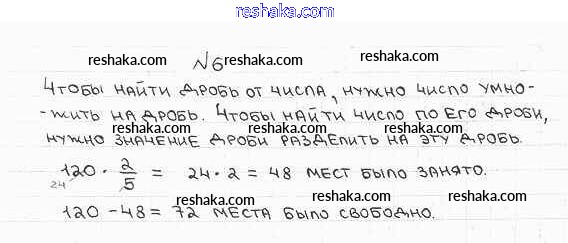 reshaka.com
reshaka.com
№6 reshaka.com
Чтобы найти дробь от числа, нужно число умно-
reshaka.com reshaka.com
-жить на дробь. Чтобы найти число по его дроби,
нужно значение дроби разделить на эту дробь.
reshaka.com reshaka.com
120 · 2/5 = 24 · 2 = 48 мест было занято.
24
reshaka.com reshaka.com
120 - 48 = 72 места было свободно.